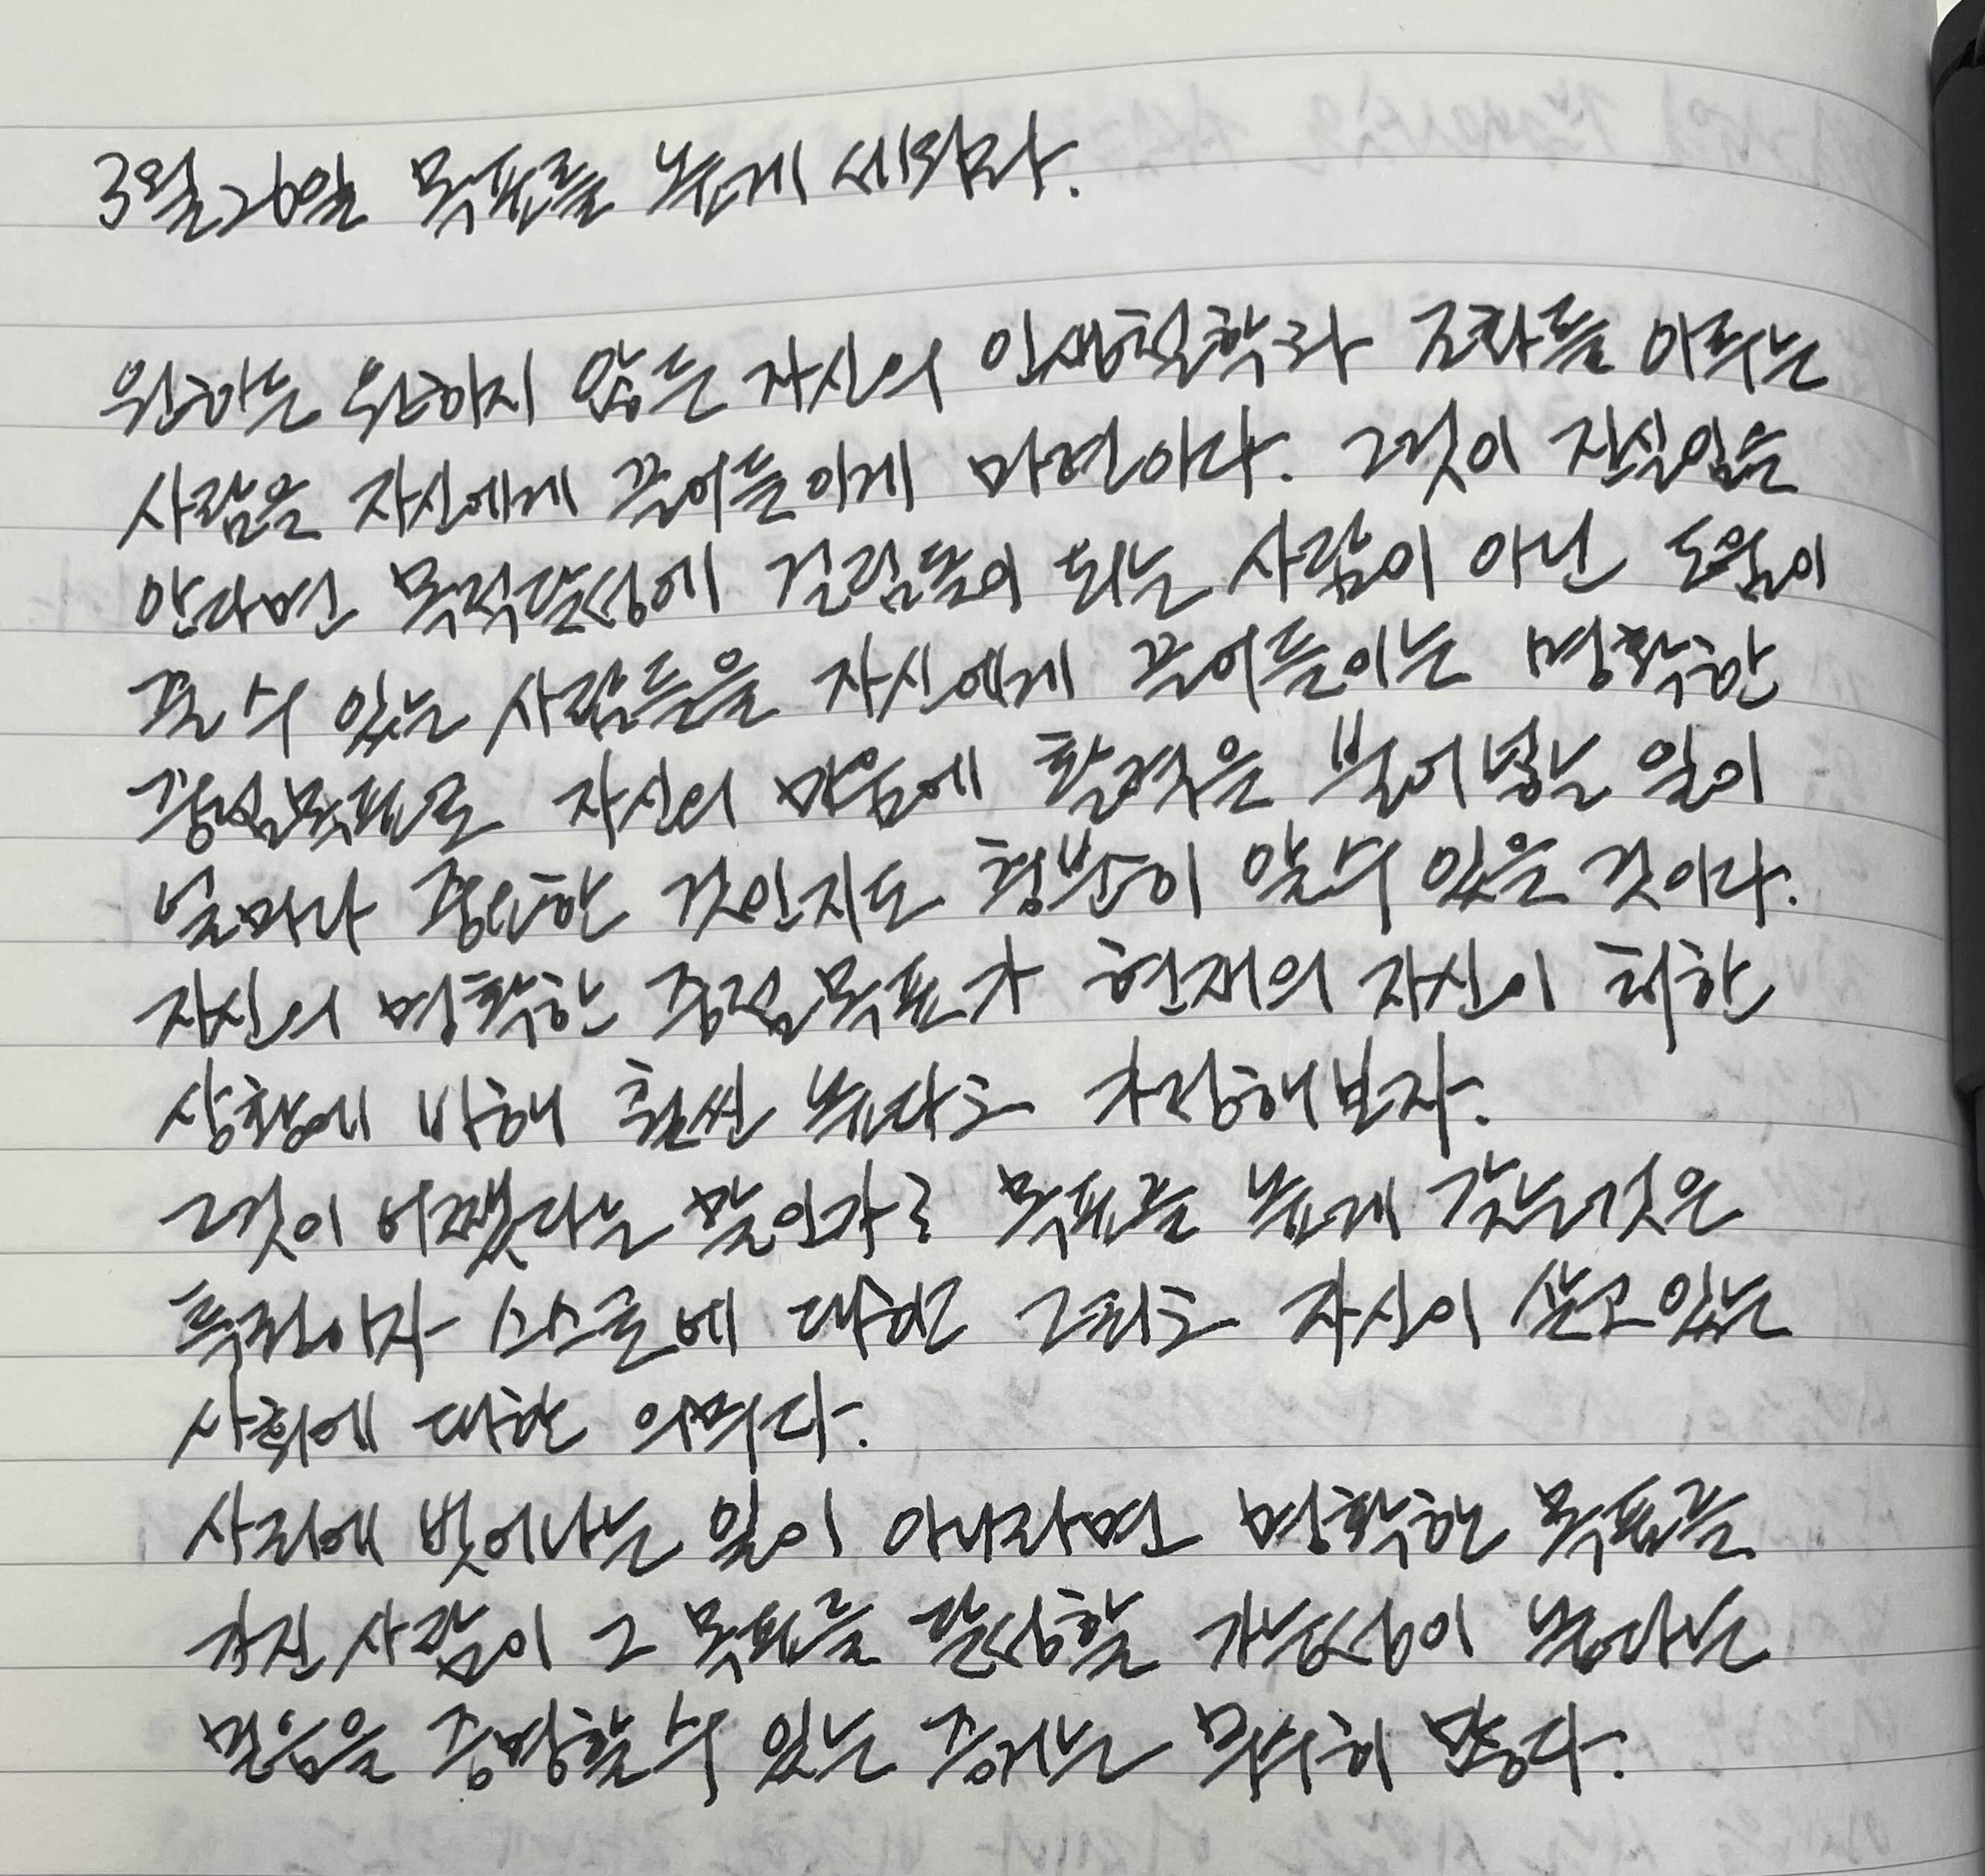 3월26일 목표를 높게 세워라.
원하든 원하지 않든 자신의 인생철학과 조화를 이루는
사람을 자신에게 끌어들이게 마련이다. 그것이 진실임을
안다면 목적달성에 걸림돌이 되는 사람이 아닌 도움이
될 수 있는 사람들을 자신에게 끌어들이는 명확한
중점목표로 자신의 마음에 활력을 불어넣는 일이
얼마나 중요한 것인지도 충분히 알수 있을 것이다.
자신의 명확한 중점목표가 현재의 자신이 처한
상황에 비해 훨씬 높다고 가정해보자.
그것이 어쨌다는 말인가? 목표를 높게 갖는것은
특권이자 스스로에 대한 그리고 자신이 살고있는
사회에 대한 의무다.
사리에 벗어나는 일이 아니라면 명확한 목표를
가진 사람이 그 목표를 달성할 가능성이 높다는
믿음을 증명할수 있는 증거는 무수히 많다.